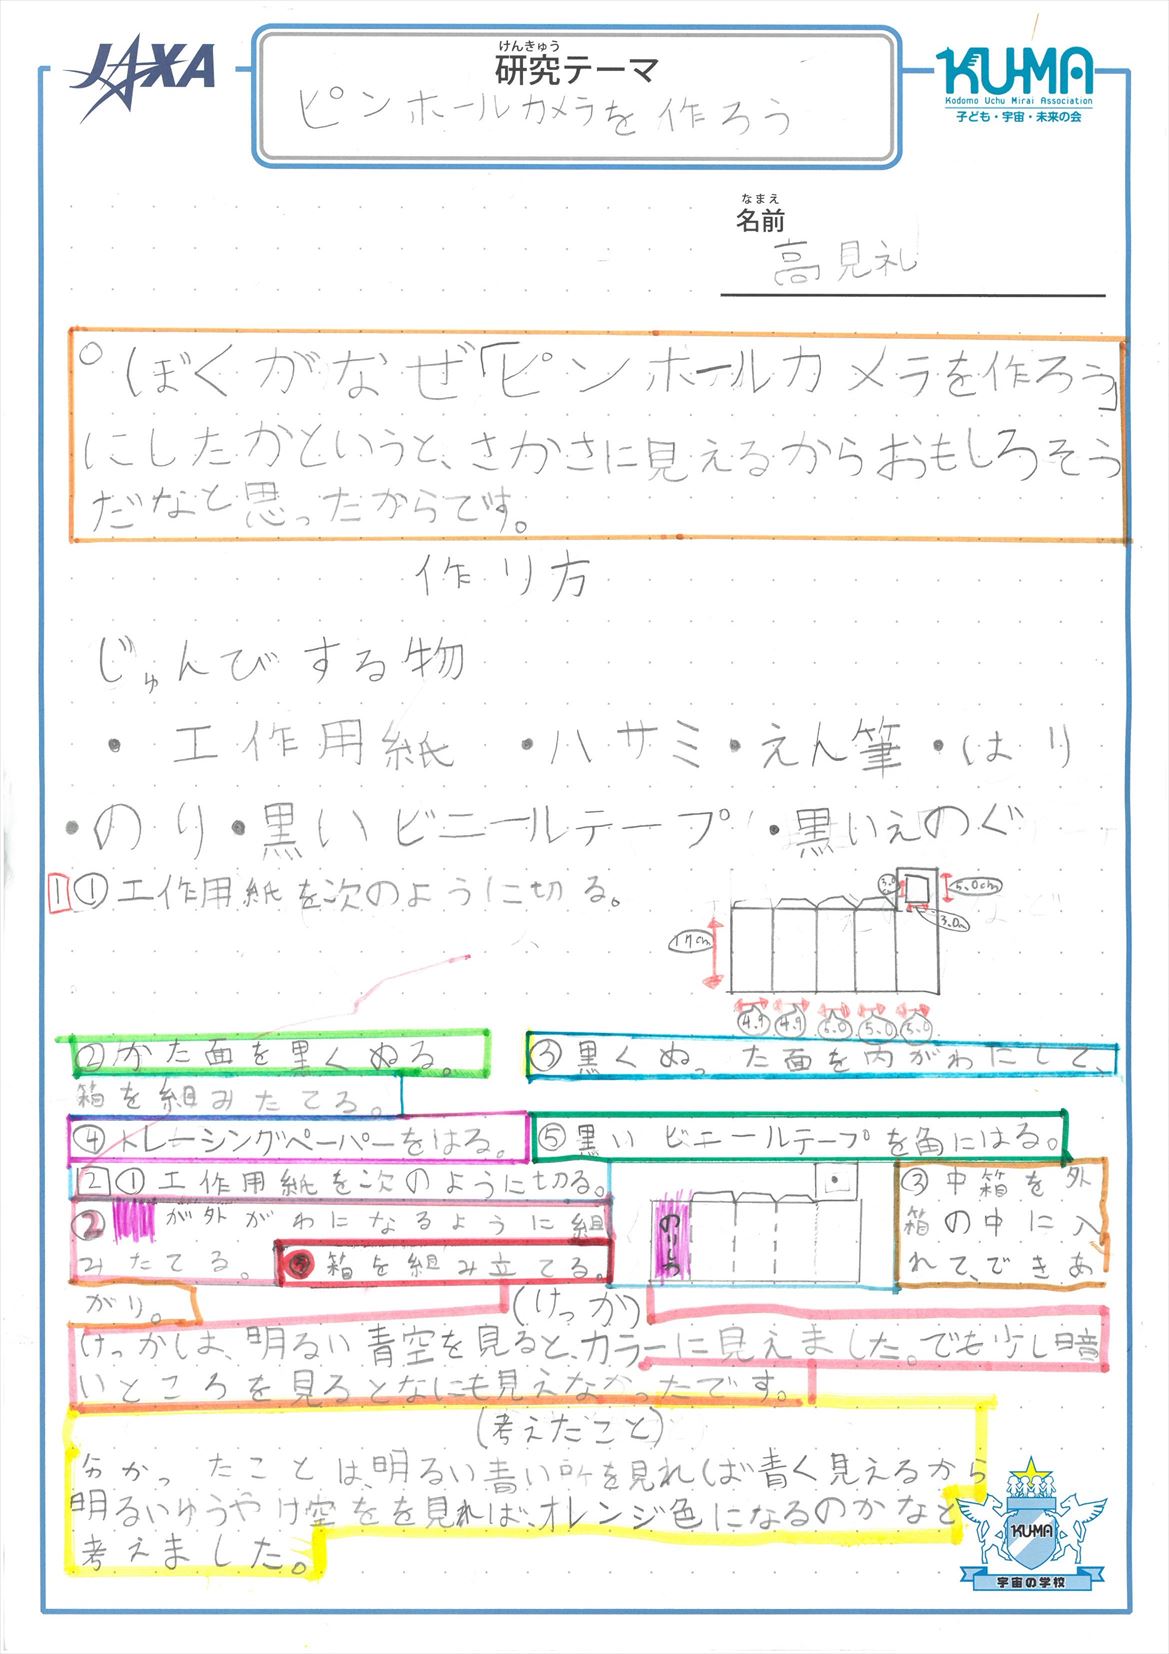 JAXA
けんきゅう
研究テーマ
ピンホールカメラを作ろう
KU-MA
Kodomo Uchu Mirai Association
子ども・宇宙・未来の会
なまえ
名前
高見礼
○ぼくがなぜ「ピンホールカメラを作ろう」
にしたかというと、さかさに見えるからおもしろそう
だなと思ったからです。
作り方
じゅんびする物
・工作用紙 ・ハサミ・えん筆・はり
・のり・黒いビニールテープ ・黒いえのぐ
1 ①工作用紙を次のように切る。
3.0
5.0cm
3.0
17cm
4.9 4.9 5.0 5.0 5.0
②かた面を黒くぬる。
③黒くぬった面を内がわにして、
箱を組みたてる。
④トレーシングペーパーをはる。
⑤黒いビニールテープを角にはる。
2 ①工作用紙を次のように切る。
② が外がわになるように組
みたてる。
箱を組み立てる。
のりしろ
③中箱を外
箱の中に入
れて、できあ
がり。
(けっか)
けっかしは、明るい青空を見ると、カラーに見えました。でも少し暗
いところを見るとなにも見えなかったです。
(考えたこと)
分かったことは、明るい青い所を見れば青く見えるから
明るいゆうやけ空をを見れば、オレンジ色になるのかなと
考えました。
KU-MA
宇宙の学校